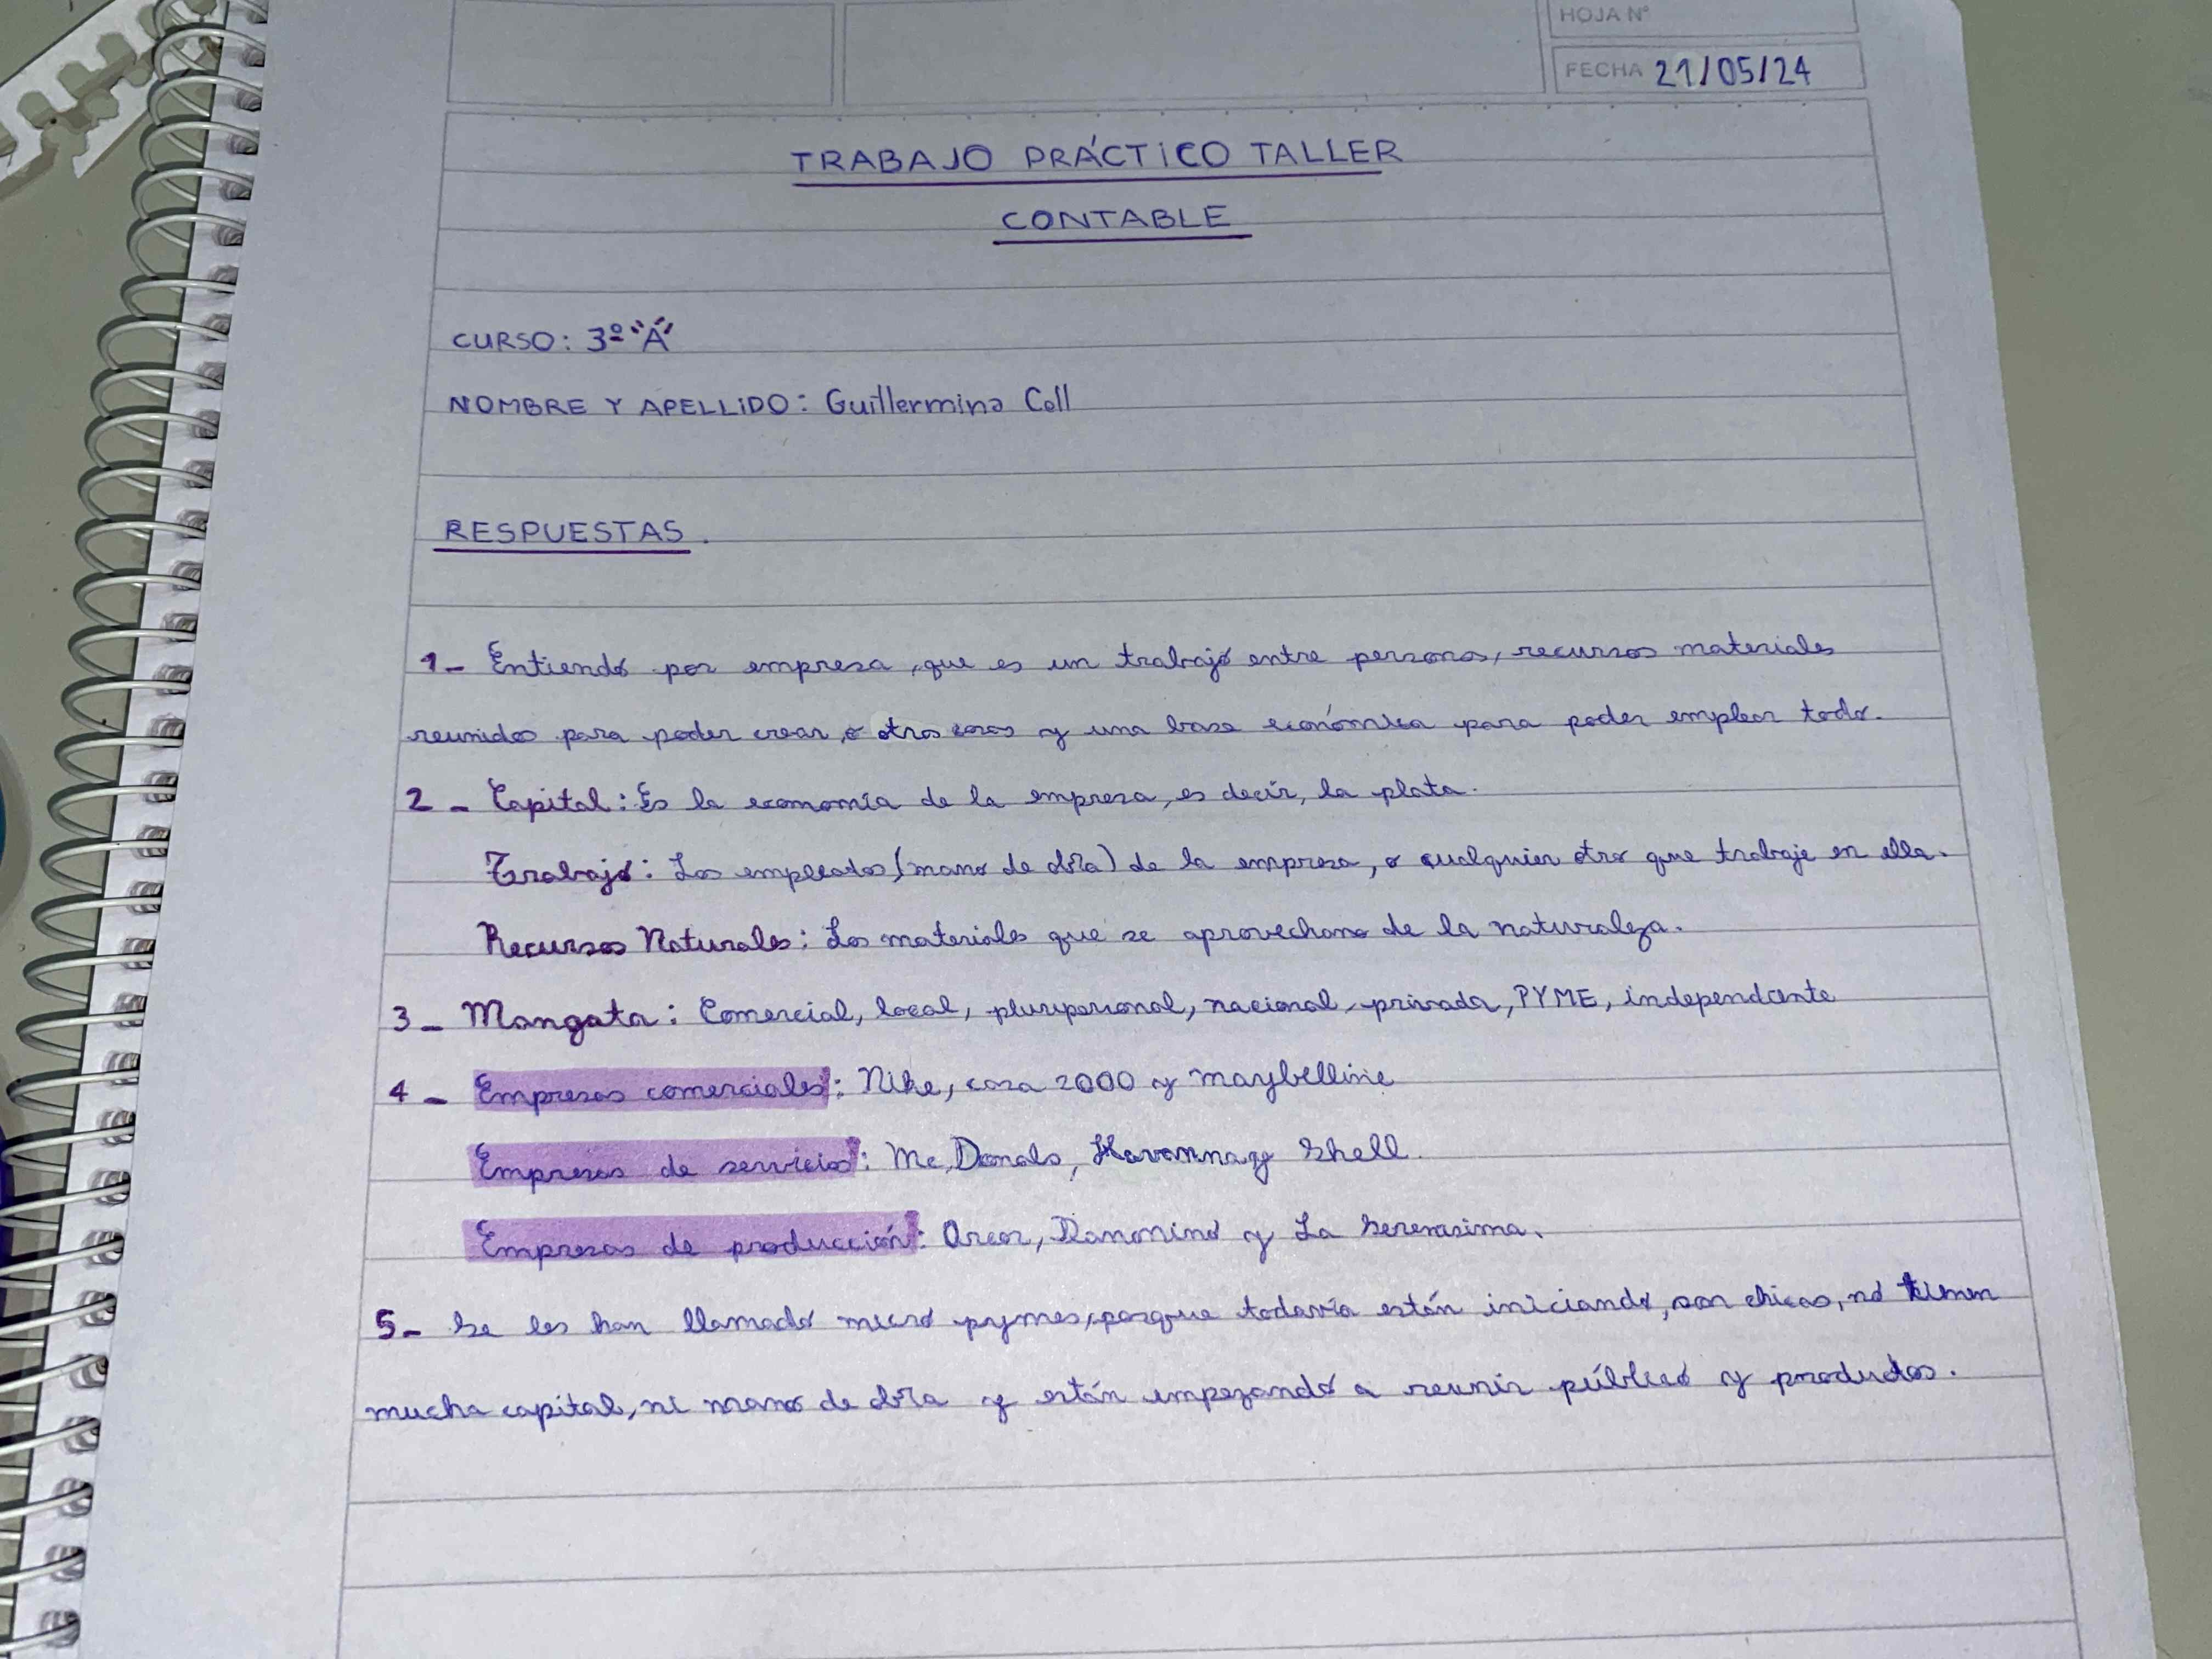 HOJA Nº
FECHA 21/05/24
TRABAJO PRÁCTICO TALLER
CONTABLE
CURSO: 3º "A"
NOMBRE Y APELLIDO: Guillermina Coll
RESPUESTAS.
1- Entiendo por empresa, que es un trabajo entre personas, recursos materiales
reunidos para poder crear, o otras cosas y una base económica para poder emplear todo.
2- Capital: Es la economía de la empresa, es decir, la plata.
Trabajo: Los empleados (mano de obra) de la empresa, o cualquier otro que trabaje en ella.
Recursos Naturales: Los materiales que se aprovechan de la naturaleza.
3- Mangata: Comercial, local, pluripersonal, nacional, privada, PYME, independante
4- Empresas comerciales: Nike, casa 2000 y maybelline
Empresas de servicios: Mc Donals, Havanna y Shell.
Empresas de producción: Arcor, Danonino y La Serenisima.
5- Se les han llamado micro pymes, porque todavía están iniciando, son chicas, no tienen
mucha capital, ni mano de obra y están empezando a reunir público y productos.